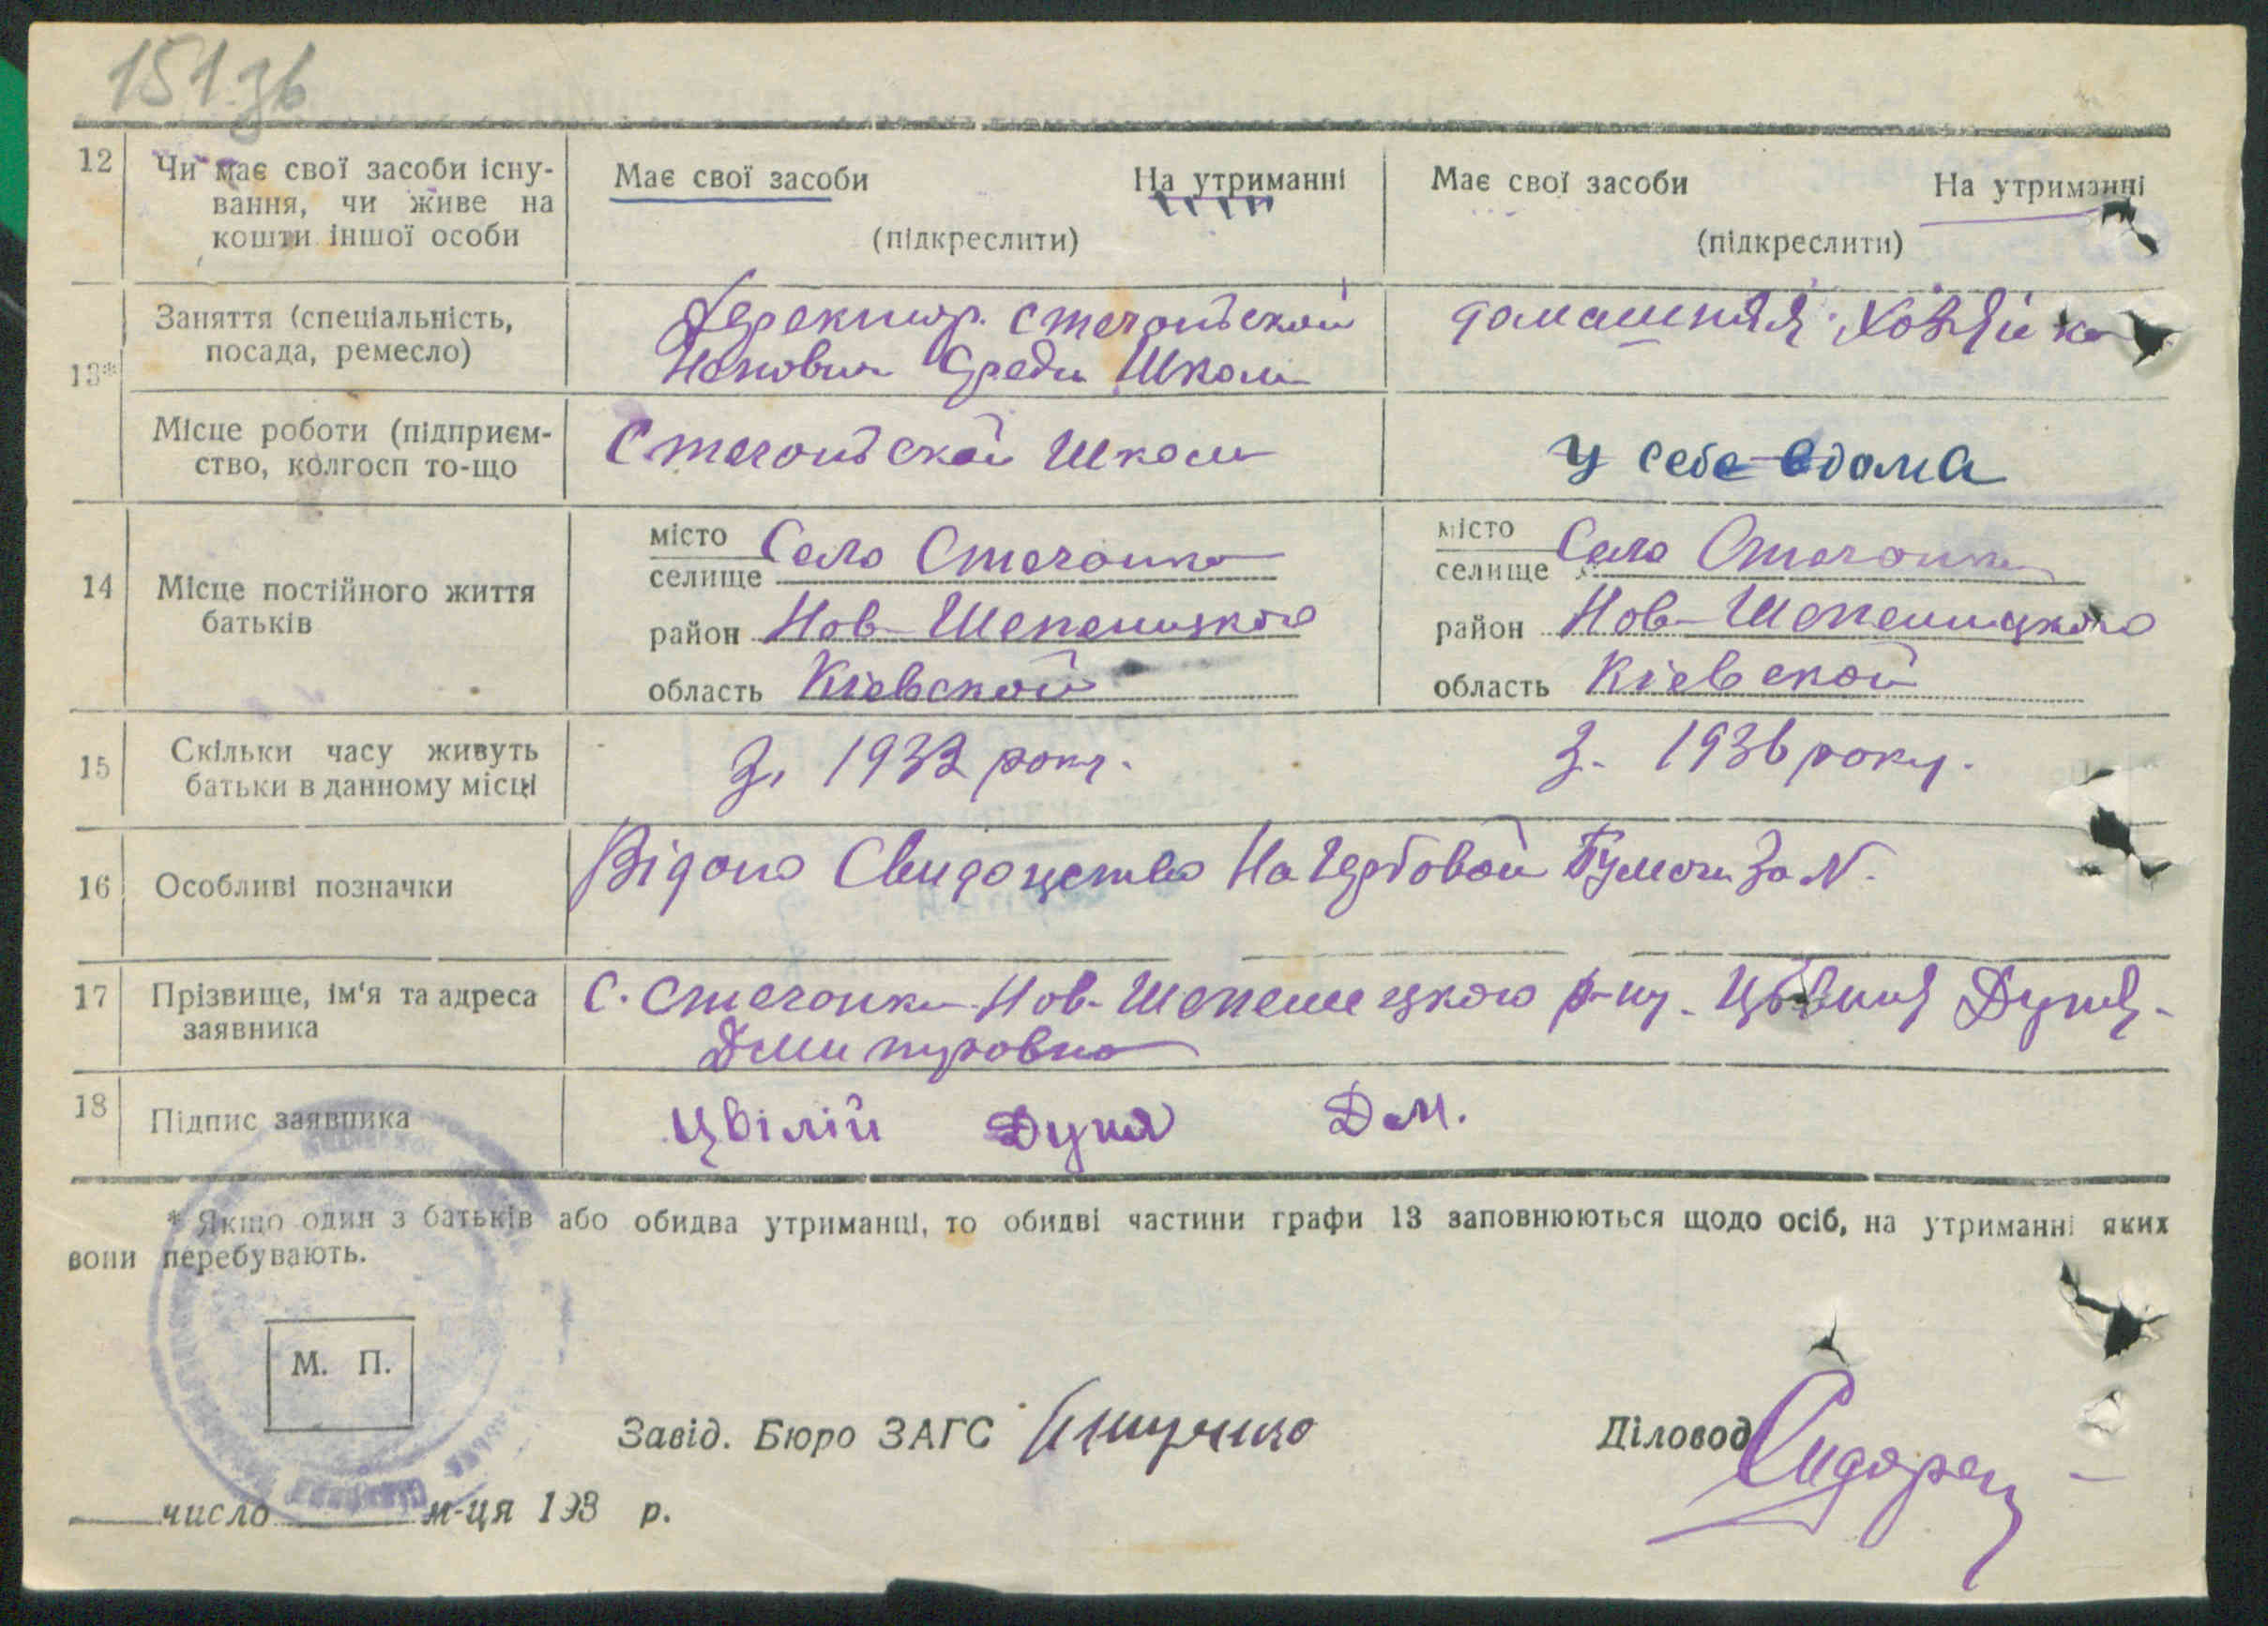 151 зв
12 Чи має свої засоби існу-
вання, чи живе на
кошти іншої особи
Має свої засоби На утриманні
(підкреслити)
Має свої засоби На утриманні
(підкреслити)
13*
Заняття (спеціальність,
посада, ремесло)
Деректор. Стечанской
Неповн Средн Школи
домашняя Хозяйка
Місце роботи (підприєм-
ство, колгосп то-що
Стечанской Школи
у себе вдома
14 Місце постійного життя
батьків
місто
селище Село Стечанка
район Нов-Шепелицкого
область Кіевской
місто
селище Село Стечанка
район Нов-Шепелицкого
область Кіевской
15 Скільки часу живуть
батьки в данному місці
З. 1933 року.
З. 1936 року.
16 Особливі позначки
Відано Свидоцтво На Гербовой Бумаги За N.
17 Прізвище, ім'я та адреса
заявника
С. Стечанка Нов-Шепелецкого р-ну. Дуня
Дмитровна
18 Підпис заявника
Цвілій Дуня Дм.
* Якщо один з батьків або обидва утриманці, то обидві частини графи 13 заповнюються щодо осіб, на утриманні яких
вони перебувають.
М. П.
Завід. Бюро ЗАГС
Діловод Сидорец
число м-ця 193 р.